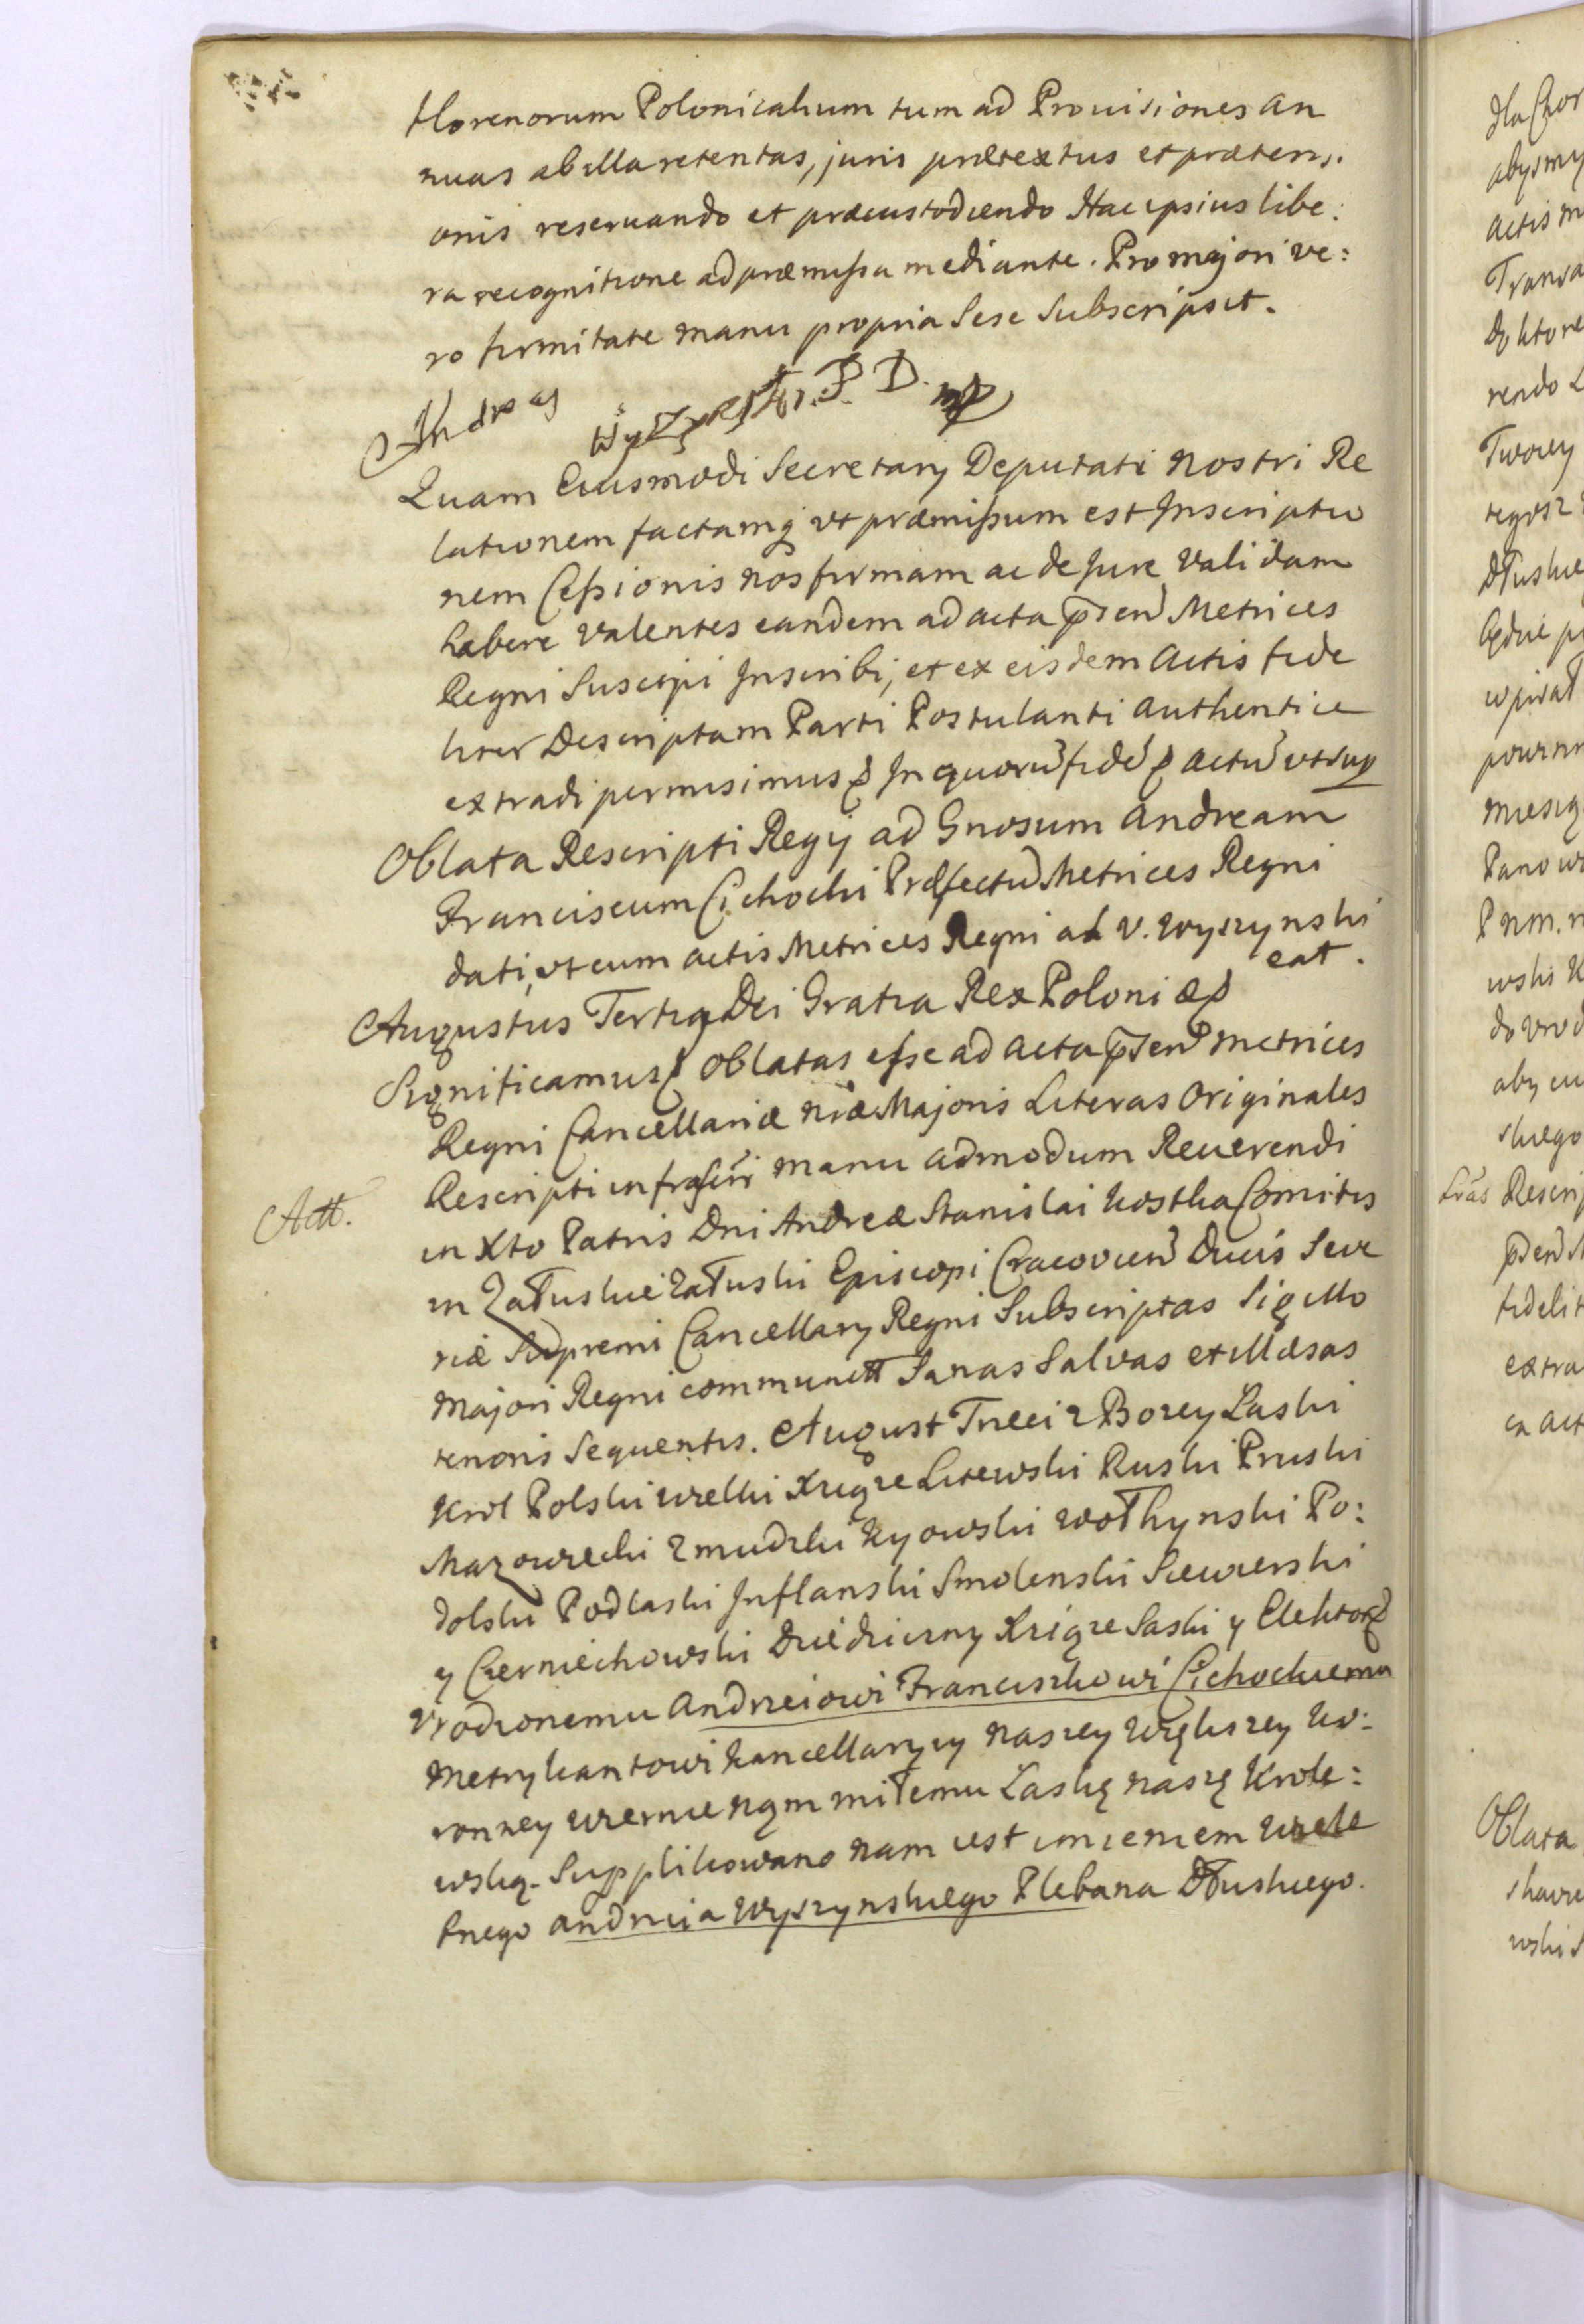 florenorum Polonicalium tum ad Prouisiones an
nuas ab illa retentas, juris prætextus et prætensi.
onis reseruando et præcustodiendo Hac ipsius libe:
ra recognitione ad præmissa mediante. Pro majori ve:
ro firmitate manu propria Sese Subscripsit.
Andreas Wyszynski. P. D. mp
Quam Eiusmodi Secretarij Deputati nostri Re
lationem factamq ut præmissum est Inscriptio
nem Cessionis nos firmam ac de Jure Validam
habere valentes eandem ad acta pnsen Metrices
Regni Suscipi Inscribi, et ex eisdem Actis fide
liter Descriptam Parti Postulanti authentice
extradi permisimus In quorū fidē Actū ut sup
Oblata Rescripti Regij ad Gnosum Andream
Franciscum Cichocki Præfectū Metrices Regni
dati, ut cum actis Metrices Regni ad V. Wyszynski
eat.
Augustus Tertius Dei Gratia Rex Poloniæ
Significamus Oblatas esse ad acta pnsen metrices
Regni Cancellariæ nræ Majoris Literas Originales
Rescripti infrascri manu admodum Reuerendi
Actt.
in Xto Patris Dni Andreæ Stanislai Kostka Comitis
in Załuskie Załuski Episcopi Cracovien Ducis Seve
riæ Supremi Cancellarij Regni Subscriptas Sigillo
majori Regni communitt Sanas Salvas et illæsas
tenoris Sequentis. August Trzeci z Bozey Łaski
Krol Polski wielki Xiąze Litewski Ruski Pruski
Mazowiecki Zmudzki Kyowski wołhynski Po:
dolski Podlaski Inflanski Smolenski Siewierski
y Czerniechowski Dziedziczny Xsiąze Saski y Elektor
Vrodzonemu Andrzeiowi Franciszkowi Cichockiemu
Metrykantowi kancellaryiy naszey większey ko:
ronney wiernie nąm miłemu Łaskę naszę Krole:
wską. Supplikowano nam iest imieniem wiele
bnego andrzeia Wyszynskiego Plebana Dłuskiego.